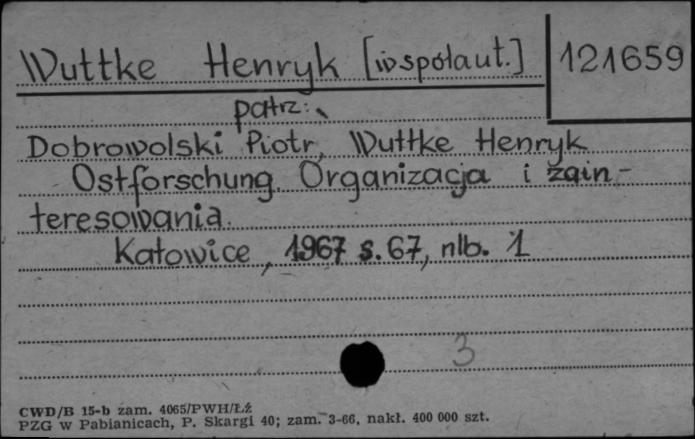 Wuttke Henryk [współaut.] 121659
patrz:
Dobrowolski Piotr, Wuttke Henryk
Ostforschung. Organizacja i zain-
teresowania.
Katowice, 1967 s. 67, nlb. 1
3
CWD/B 15-b zam. 4065/PWH/Łź
PZG w Pabianicach, P. Skargi 40; zam. 3-66, nakł. 400 000 szt.